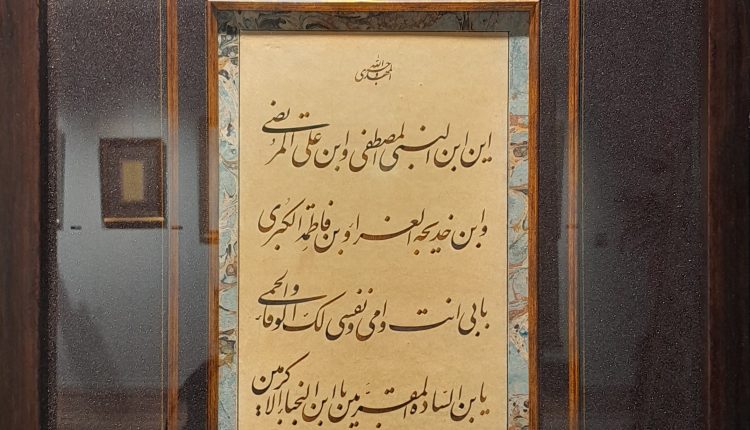 حجة الله المهدی
این ابن النبی المصطفی و ابن علی المرتضی
و ابن خدیجه الغراء و بن فاطمة الکبری
بابی انت و امی و نفسی لک الوقاء و الحمی
یابن السادة المقربین یا ابن النجباء الاکرمین